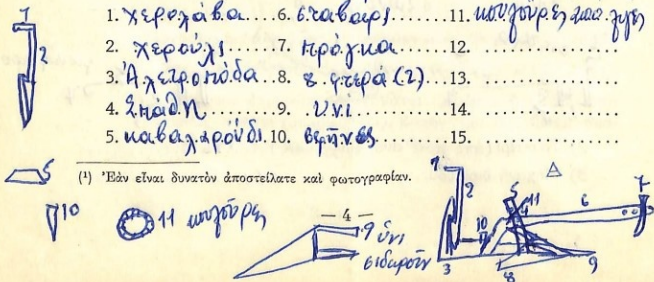 1
1. χερολάβα....6. σταβάρι......11. κουλούρες από λυγες
2
2. χερούλι......7. πρόγκα........12. ..................
3. Ἀλετροπόδα 8. φτερά (2)....13. ..................
4. Σπάθη........9. υνί...............14. ..................
5. καβαλαρούδι.10. ..................15. ..................
5
(¹) Ἐὰν εἶναι δυνατὸν ἀποστείλατε καὶ φωτογραφίαν.
10
11 κουλούρες
— 4 —
9 ὑνι
1 2 10 5 4 11 6 7
3 8 9